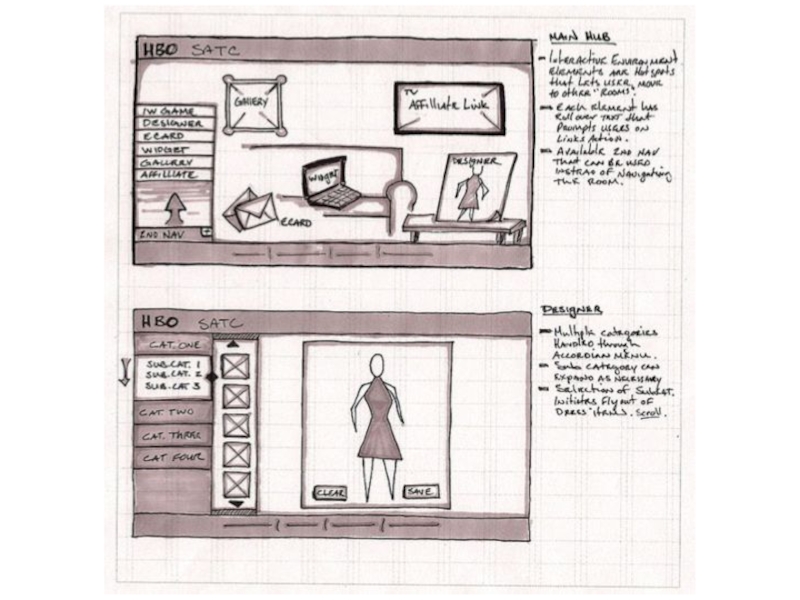 HBO SATC
GALLERY
TV
AFFILLIATE LINK
IW GAME
DESIGNER
ECARD
WIDGET
GALLERY
AFFILLIATE
2ND NAV +
WIDGET
DESIGNER
ECARD
MAIN HUB
- INTERACTIVE ENVIRONMENT
ELEMENTS ARE HOTSPOTS
THAT LETS USER MOVE
TO OTHER "ROOMS".
- EACH ELEMENT HAS
ROLLOVER TEXT THAT
PROMPTS USERS ON
LINKS ACTION.
- AVAILABLE 2ND NAV
THAT CAN BE USED
INSTEAD OF NAVIGATING
THE ROOM.
HBO SATC
CAT. ONE
SUB.CAT. 1
SUB.CAT. 2
SUB.CAT 3
CAT TWO
CAT. THREE
CAT FOUR
CLEAR
SAVE
DESIGNER
- MULTIPLE CATEGORIES
HANDLED THROUGH
ACCORDIAN MENU.
- SUB CATEGORY CAN
EXPAND AS NECESSARY
- SELECTION OF SUBCAT.
INITIATES FLY OUT OF
DRESS ITEMS. SCROLL.